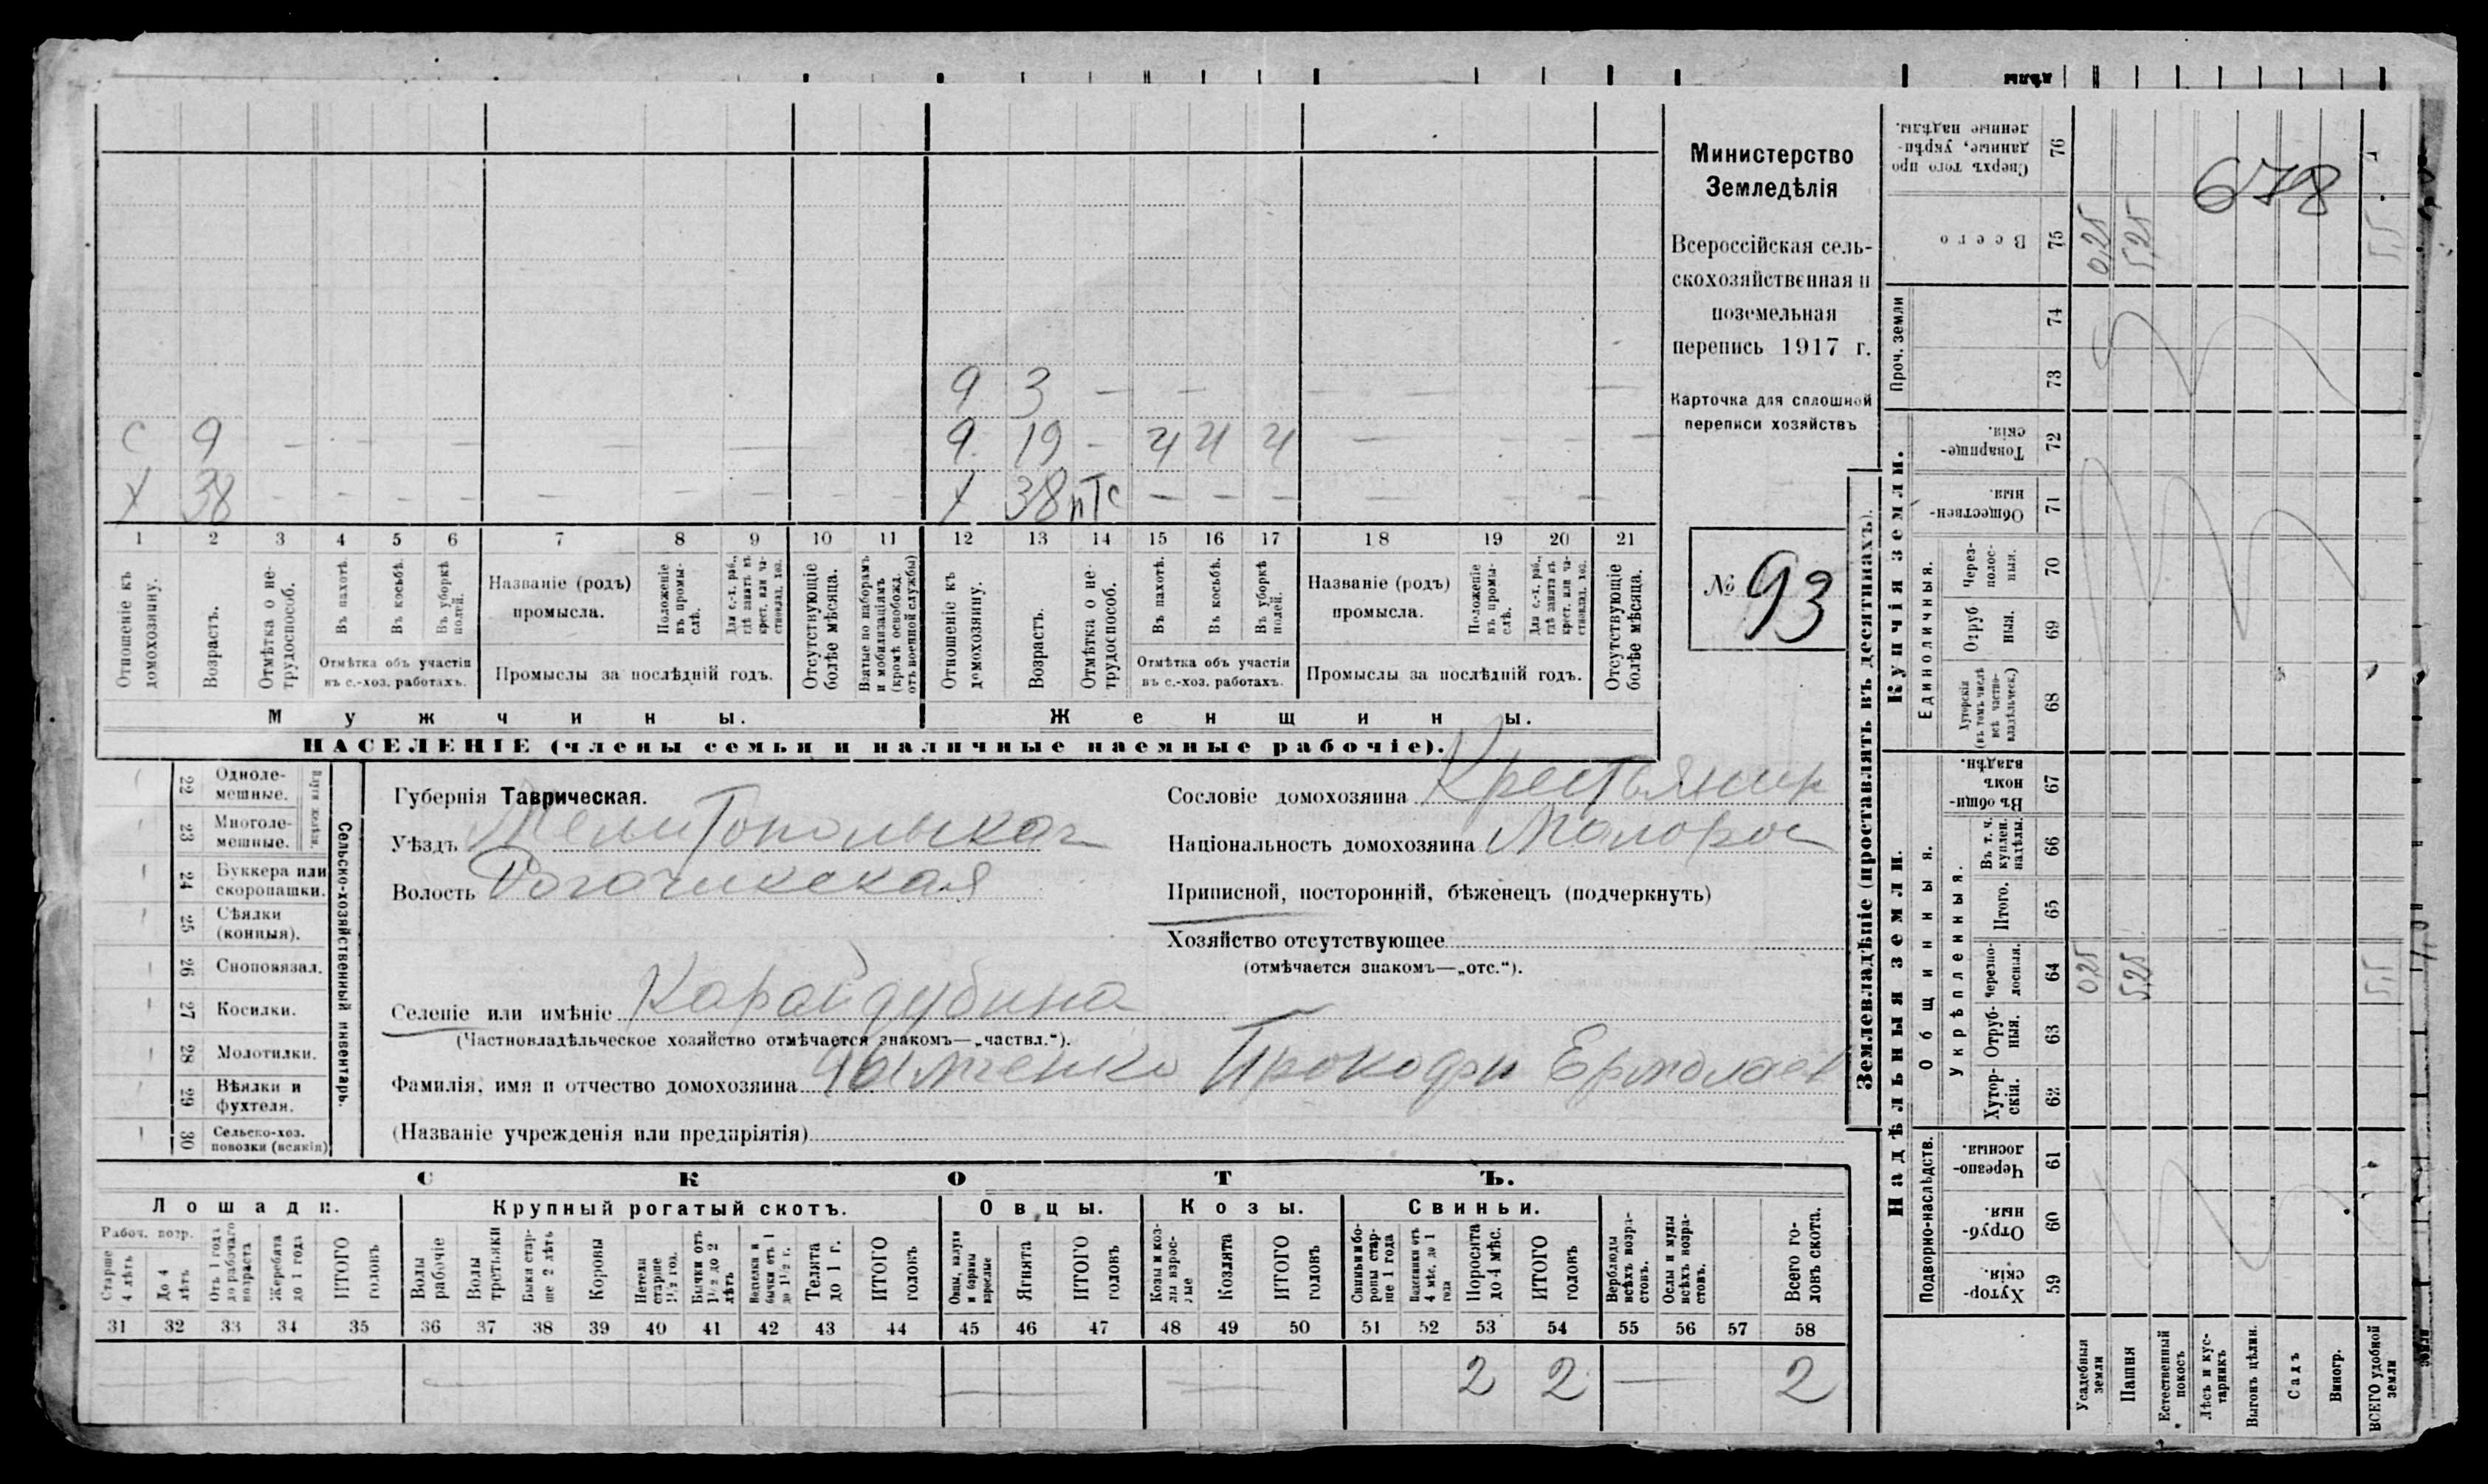 с 9 - - - - - - - - -
х 38 - - - - - - - - -
9 3 - - - - - -
9 19 - ч ч ч - - - -
х 38 птс - - - - - - -
1 2 3 4 5 6 7 8 9 10 11 12 13 14 15 16 17 18 19 20 21
Отношеніе къ домохозяину.
Возрастъ.
Отмѣтка о нетрудоспособ.
Въ пахотѣ.
Въ косьбѣ.
Въ уборкѣ полей.
Названіе (родъ) промысла.
Положеніе въ промыслѣ.
Для с.-х. раб., гдѣ занятъ въ крест. или частновлад. хоз.
Отмѣтка объ участіи въ с.-хоз. работахъ.
Промыслы за послѣдній годъ.
Отсутствующіе болѣе мѣсяца.
Взятые по наборамъ и мобилизаціямъ (кромѣ освобожд. отъ военной службы)
Отношеніе къ домохозяину.
Возрастъ.
Отмѣтка о нетрудоспособ.
Въ пахотѣ.
Въ косьбѣ.
Въ уборкѣ полей.
Названіе (родъ) промысла.
Положеніе въ промыслѣ.
Для с.-х. раб., гдѣ занята въ крест. или частновлад. хоз.
Отмѣтка объ участіи въ с.-хоз. работахъ.
Промыслы за послѣдній годъ.
Отсутствующіе болѣе мѣсяца.
Мужчины.
Женщины.
НАСЕЛЕНІЕ (члены семьи и наличные наемные рабочіе).
Министерство
Земледѣлія
Всероссійская сель-
скохозяйственная и
поземельная
перепись 1917 г.
Карточка для сплошной
переписи хозяйствъ
№ 93
22 Одноле-
мешные.
23 Многоле-
мешные.
24 Буккера или
скоропашки.
25 Сѣялки
(конныя).
26 Сноповязал.
27 Косилки.
28 Молотилки.
29 Вѣялки и
фухтеля.
30 Сельско-хоз.
повозки (всякія)
Сельско-хозяйственный инвентарь.
Губернія Таврическая.
Уѣздъ Мелитопольская
Волость Рогачикская
Селеніе или имѣніе Карайдубина
(Частновладѣльческое хозяйство отмѣчается знакомъ—„частвл.“).
Фамилія, имя и отчество домохозяина Прокофи Ермолаев
(Названіе учрежденія или предпріятія)
Сословіе домохозяина Крестьянин
Національность домохозяина Малорос
Приписной, посторонній, бѣженецъ (подчеркнуть)
Хозяйство отсутствующее
(отмѣчается знакомъ—„отс.“).
СКОТЪ.
Лошади. Крупный рогатый скотъ. Овцы. Козы. Свиньи.
Рабоч. возр.
Старше 4 лѣтъ
До 4 лѣтъ
Отъ 1 года до рабочаго возраста
Жеребята до 1 года
ИТОГО головъ
Волы рабочіе
Волы третьяки
Быки старше 2 лѣтъ
Коровы
Нетели старше 1½ год.
Бычки отъ 1½ до 2 лѣтъ
Телки и бычки отъ 1 до 1½ г.
Телята до 1 г.
ИТОГО головъ
Овцы, валухи и бараны взрослые
Ягнята
ИТОГО головъ
Козы и козлы взрослые
Козлята
ИТОГО головъ
Свиньи боровы старше 1 года
Подсвинки отъ 4 мѣс. до 1 года
Поросята до 4 мѣс.
ИТОГО головъ
Верблюды всѣхъ возрастовъ.
Ослы и мулы всѣхъ возрастовъ.
Всего головъ скота.
31 32 33 34 35 36 37 38 39 40 41 42 43 44 45 46 47 48 49 50 51 52 53 54 55 56 57 58
2 2 — 2
Землевладѣніе (проставлять въ десятинахъ).
Надѣльныя земли.
Купчія земли.
Проч. земли
Подворно-наслѣдств.
Общинныя.
Укрѣпленныя.
Единоличныя.
Сверхъ того проданные, укрѣпленные надѣлы. 76
Всего 75 0,25 5,25 5,5
74
73
Товарищескія. 72
Общественныя. 71
Черезполосныя. 70
Отрубныя. 69
Хуторскія (въ томъ числѣ всѣ частновладѣльческ.) 68
Въ общинномъ владѣн. 67
Въ т. ч. куплен. надѣлы. 66
Итого. 65
Черезполосныя. 64 0,25 5,25 5,5
Отрубныя. 63
Хуторскія. 62
Черезполосныя. 61
Отрубныя. 60
Хуторскія. 59
Усадебныя земли
Пашня
Естественный покосъ
Лѣсъ и кустарникъ
Выгонъ цѣлин.
Садъ
Виногр.
ВСЕГО удобной земли
678